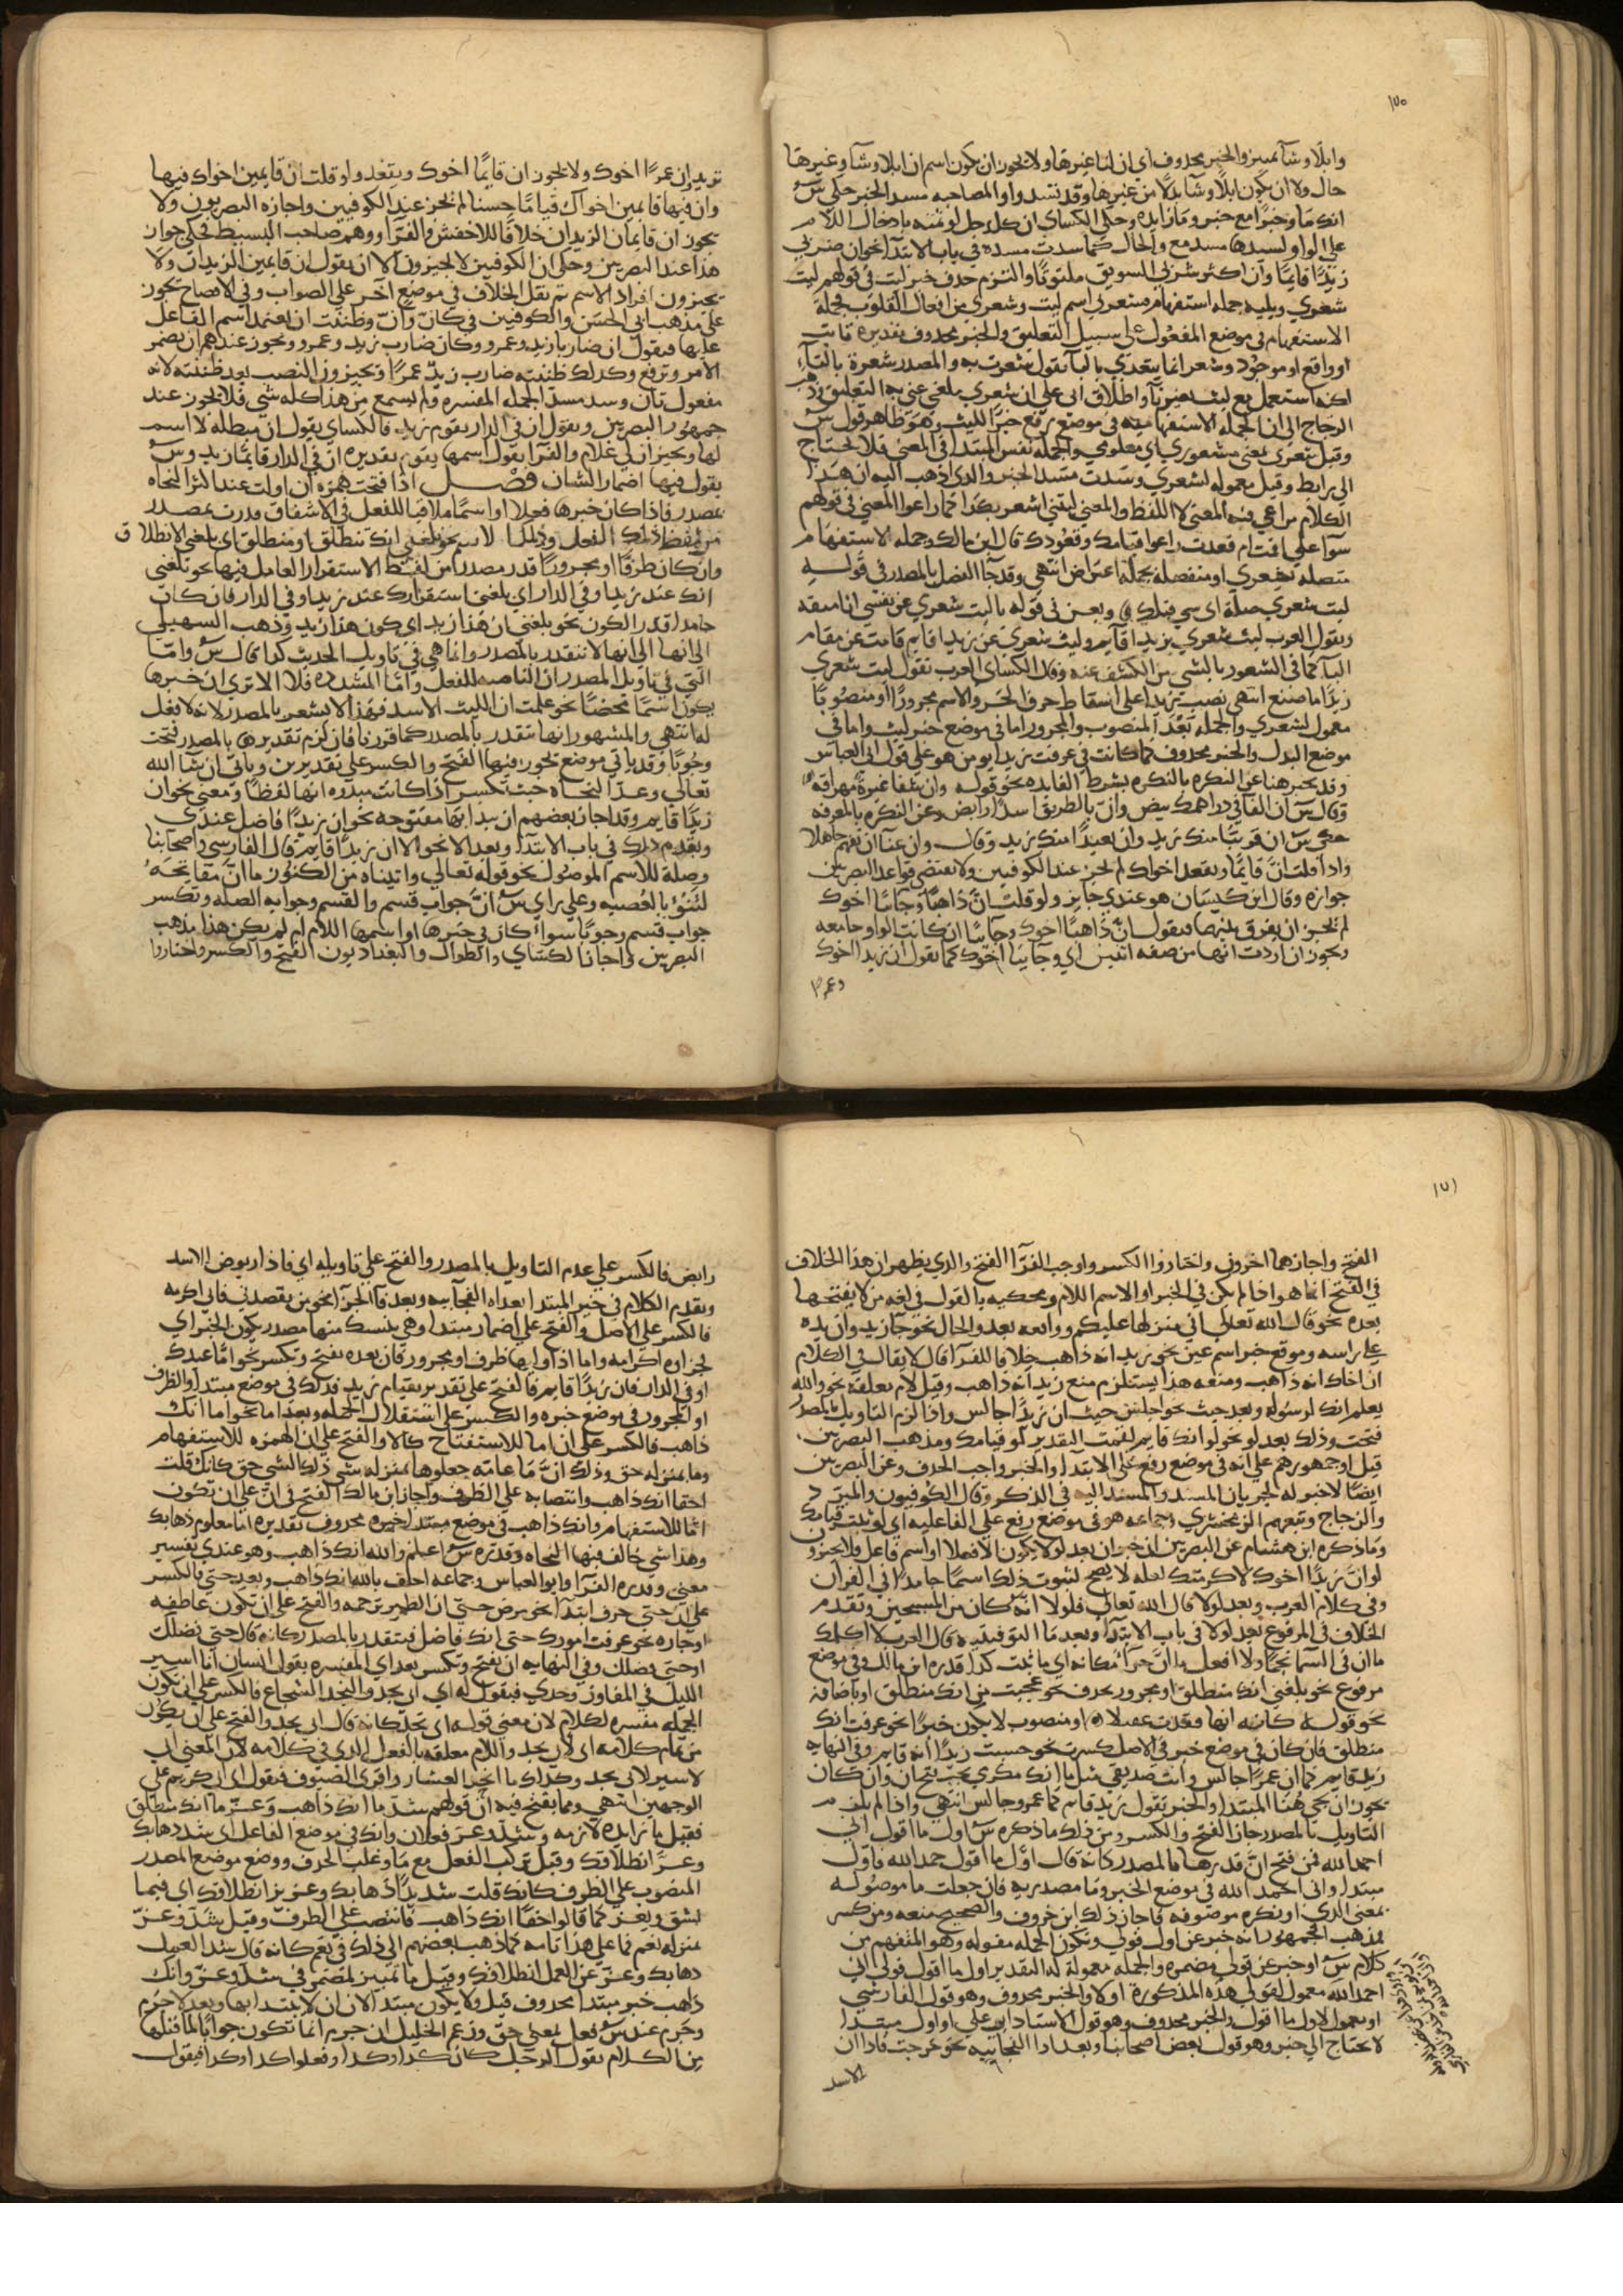 ١٧٠
وابلا وشآ تمييز والخبر محذوف اي ان لنا غيرها ولا يجوز ان يكون اسم ان ابلا وشآ وغيرها
حال ولا ان يكون ابلا وشآ بدلا من غيرها وقد تسد واو المصاحبه مسد الخبر حكي س
انك ما وخيرا اي مع خير وما زايده وحكي الكساي ان كل رجل لو ثمنه بادخال اللام
علي الواو لسدها مسد مع والحال كما سدت مسده في باب الابتدا نحو ان ضربي
زيدا قايما وان اكثر شربي السويق ملتوتا والتزم حذف خبر ليت في قولهم ليت
شعري ويليه جمله استفهام فشعري اسم ليت وشعري من افعال القلوب فجملة
الاستفهام في موضع المفعول علي سبيل التعليق والخبر محذوف تقديره ثابت
او واقع او موجود وشعر انما يتعدي بالبا تقول شعرت به والمصدر شعرة بالتآء
لكنه استعمل مع ليت بغير تآ واطلاق ان علي ان شعري ملغي عني به التعليق وذهب
الزجاج الي ان الجمله الاستفهاميه في موضع رفع خبرا لليت وهو ظاهر قول س
وقيل شعري بمعني مشعوري اي معلومي والجمله نفس المبتدا في المعني فلا يحتاج
الي رابط وقيل معموله لشعري وسدت مسد الخبر والذي اذهب اليه ان هذا
الكلام مراعي فيه المعني لا اللفظ والمعني ليتني اشعر بكذا كما راعوا المعني في قولهم
سوآ علي اقمت ام قعدت راعوا قيامك وقعودك قال ابن مالك وجمله الاستفهام
متصله بشعري او منفصله بجمله اعتراض انتهي وقد جآ الفصل بالمصدر في قوله
ليت شعري ضلة اي شي قتلك وبعن في قوله يا ليت شعري عن نفسي
وتقول العرب ليت شعري بزيد اقايم وليت شعري عن زيد اقايم قامت عن مقام
البآ كما في الشعور بالشي من الكشف عنه وقال الكساي العرب تقول ليت شعري
زيدا ما صنع انتهي نصب زيدا علي اسقاط حرف الجر والاسم مجرورا او منصوبا
معمول لشعري والجمله بعد المنصوب والمجرور اما في موضع خبر ليت واما في
موضع البدل والخبر محذوف كما كانت في عرفت زيدا ابو من هو علي قول ابي العباس
وقد يخبر هنا عن النكره بالنكره بشرط الفايده نحو قوله وان شفا عبرة مهراقة
وقال س ان الفا في دراهمك بيض وان بالطريق اسدا رابض وعن النكره بالمعرفه
حكي س ان قريبا منك زيد وان بعيدا منك زيد وقال وان عنآ ان تفهم جاهلا
واذا قلت ان قايما ويقعد اخواك لم يجز عند الكوفيين ولا تقتضي قواعد البصريين
جوازه وقال ابن كيسان هو عندي جايز ولو قلت ان ذاهبا وجاسا اخوك
لم يجز ان يفرق بينهما فتقول ان ذاهبا اخوك وجاسا ان كانت الواو جامعه
ويجوز ان اردت انهما من صفه اثنين اي وجاسا اخوك كما تقول ان زيدا اخوك
وعمرا
تريد ان عمرا اخوك ولا يجوز ان قايما اخوك ويقعد ولو قلت ان قايمين اخواك فيها
وان فيها قايمين اخواك قياما حسنا لم يجز عند الكوفيين واجازه البصريون ولا
يجوز ان قايمان الزيدان خلافا للاخفش والفرآ ووهم صاحب البسيط فحكي جواز
هذا عند البصريين وحكي ان الكوفيين لا يجيزون الا ان يقول ان قايمين الزيدان ولا
يجيزون افراد الاسم ثم نقل الخلاف في موضع آخر علي الصواب وفي الافصاح تجوز
علي مذهب ابي الحسن والكوفيين في كان وان وظننت ان يعتمد اسم الفاعل
عليها فيقول ان ضاربا زيد وعمرو وكان ضارب زيد وعمرو ويجوز عندهم ان يضمر
الامر وترفع وكذلك ظننته ضارب زيد عمرا ويجيزون النصب بعد ظننته لانه
مفعول ثان وسد مسد الجمله المفسره ولم يسمع من هذا كله شي فلا يجوز عند
جمهور البصريين وتقول ان في الدار يقوم زيد فالكساي يقول ان مبطله لا اسم
لها ويجيز ان لي غلام والفرآ يقول اسمها يقوم تقديره ان في الدار قايما زيد وس
يقول فيها اضمار الشان فصل اذا فتحت همزه ان اولت عند اكثر النحاه
بمصدر فاذا كان خبرها فعلا او اسما ملاقيا للفعل في الاشتقاق قدرت بمصدر
من لفظ ذلك الفعل وذلك الاسم نحو بلغني انك تنطلق او منطلق اي بلغني الانطلاق
وان كان ظرفا او مجرورا قدر مصدرا من لفظ الاستقرار العامل فيها نحو بلغني
انك عند زيد او في الدار اي بلغني استقرارك عند زيد او في الدار فان كان
جامدا قدر الكون نحو بلغني ان هذا زيد اي كون هذا زيد وذهب السهيلي
الي انها لا تتقدر بالمصدر وانما هي في تاويل الحديث كذا قال س وانما
التي في تاويل المصدر ان الناصبه للفعل واما المشدده فلا الا تري ان خبرها
يكون اسما محضا نحو علمت ان الليث الاسد فهذا لا يشعر بالمصدر لانه لا فعل
له انتهي والمشهور انها تتقدر بالمصدر كما قررنا فان لزم تقديرها بالمصدر فتحت
وجوبا وقد ياتي موضع تجوز فيها الفتح والكسر علي تقديرين وياتي ان شآ الله
تعالي وعد النحاه حيث تكسر اذا كانت مبدوه انها لفظا ومعني نحو ان
زيدا قايم وقد اجاز بعضهم ان يبدا بها مفتوحه نحو ان زيدا فاضل عندي
وتقدم ذلك في باب الابتدا وبعد الا نحو الا ان زيدا قايم قال الفارسي واصحابنا
وصلة للاسم الموصول نحو قوله تعالي واتيناه من الكنوز ما ان مفاتحه
لتنوء بالعصبه وعلي راي س ان جواب قسم والقسم وجوابه الصله وتكسر
جواب قسم وجوبا سواء كان في خبرها او اسمها اللام ام لم يكن هذا مذهب
البصريين واجاز الكساي والطوال والبغداديون الفتح والكسر واختاروا
١٧١
الفتح واجازهما اخرون واختاروا الكسر واوجب الفرآ الفتح والذي يظهر ان هذا الخلاف
في الفتح انما هو اذا لم يكن في الخبر او الاسم اللام ومحكيه بالقول في لغه من لا يفتحها
بعده نحو قال الله تعالي اني منزلها عليكم وواقعه بعد واو الحال نحو جآ زيد وان يده
علي راسه وموقع خبر اسم عين نحو زيد انه ذاهب خلافا للفرآ قال لا يقال في الكلام
ان اخاك انه ذاهب ومنعه هذا يستلزم منع زيد انه ذاهب وقبل لام معلقه نحو والله
يعلم انك لرسوله وبعد حيث نحو اجلس حيث ان زيدا جالس واذا لزم التاويل بالمصدر
فتحت وذلك بعد لو نحو لو انك قايم لقمت التقدير لو قيامك ومذهب البصريين
قيل او جمهورهم علي انه في موضع رفع علي الابتدا والخبر واجب الحذف وعن البصريين
ايضا لا خبر له لجريان المسند والمسند اليه في الذكر وقال الكوفيون والمبرد
والزجاج وتبعهم الزمخشري وجماعه هو في موضع رفع علي الفاعليه اي لو ثبت قيامك
وما ذكره ابن هشام عن البصريين ان خبر ان بعد لو لا يكون الا فعلا او اسم فاعل فلا يجيزون
لو ان زيدا اخوك لاكرمتك لعله لا يصح لثبوت ذلك اسما جامدا في القرآن
وفي كلام العرب وبعد لولا قال الله تعالي فلولا انه كان من المسبحين وتقدم
الخلاف في المرفوع بعد لولا في باب الابتدا وبعد ما التوقيتيه قال العرب لا اكلمك
ما ان في السما نجما ولا افعل ما ان حرآ مكانه اي ما ثبت كذا قدره ابن مالك وفي موضع
مرفوع نحو بلغني انك منطلق او مجرور بحرف نحو عجبت من انك منطلق او باضافة
نحو قوله كانه انها فقدت عقيلا او منصوب لا يكون خبرا نحو عرفت انك
منطلق فان كان في موضع خبر في الاصل كسرت نحو حسبت زيدا انه قايم وفي النهايه
زيد قايم كما ان عمرا جالس وانت صديقي مثل ما انك مكرمي يجب فتح ان وان كان
يجوز ان يجي هنا المبتدا والخبر تقول زيد قايم كما عمرو جالس انتهي واذا لم يلزم
التاويل بالمصدر جاز الفتح والكسر ومن ذلك ما ذكره س اول ما اقول اني
احمد الله فمن فتح ان قدرها بالمصدر كانه قال اول ما اقول حمد الله فاول
مبتدا واني احمد الله في موضع الخبر وما مصدريه فان جعلت ما موصوله
بمعني الذي او نكره موصوفه فاجاز ذلك ابن خروف والصحيح منعه ومن كسر
فمذهب الجمهور انه خبر عن اول قولي وتكون الجمله مقوله وهو المتفهم من
كلام س او خبر عن قولي مضمره والجمله معموله له التقدير اول ما اقول قولي اني
احمد الله معمول لقولي هذه المذكورة اولا والخبر محذوف وهو قول الفارسي
او معمول لاول ما اقول والخبر محذوف وهو قول الاستاذ ابي علي او اول مبتدا
لا يحتاج الي خبر وهو قول بعض اصحابنا وبعد اذا الفجائيه نحو خرجت فاذا ان
الاسد
رابض فالكسر علي عدم التاويل بالمصدر والفتح علي تاويله اي فاذا ربوض الاسد
وتقدم الكلام في خبر المبتدا بعد اذا الفجآيه وبعد فآ الجزآ نحو من يقصدني فاني اكرمه
فالكسر علي الاصل والفتح علي اضمار مبتدا وهي ينسبك منها مصدر يكون الخبر اي
فجزاوه اكرامه واما اذا وليها ظرف او مجرور فان بعده تفتح وتكسر نحو اما عندك
او في الدار فان زيدا قايم فالفتح علي تقدير قيام زيد فذلك في موضع مبتدا والظرف
او المجرور في موضع خبره والكسر علي استقلال الجمله وبعد اما نحو اما انك
ذاهب فالكسر علي ان اما للاستفتاح كالا والفتح علي ان الهمزه للاستفهام
وما بمنزله حق وذلك ان ما عامه جعلوها بمنزله شي ذلك الشي حق كانك قلت
احقا انك ذاهب وانتصابه علي الظرف واجاز ابن مالك الفتح في ان علي ان تكون
اما للاستفهام وانك ذاهب في موضع مبتدا خبره محذوف تقديره اما معلوم ذهابك
وهذا شي خالف فيها النحاه وقدره س اعلم والله انك ذاهب وهو عندي تفسير
معني وقدره الفرآ وابو العباس وجماعه احلف بالله انك ذاهب وبعد حتي فالكسر
علي ان حتي حرف ابتدا نحو مرض حتي ان الطير ترحمه والفتح علي ان تكون عاطفه
او جاره نحو عرفت امورك حتي انك فاضل فيتقدر بالمصدر كانه قال حتي فضلك
او حتي فضلك وفي النهايه ان تفتح وتكسر بعد اي المفسره يقول انسان انا اسير
الليل في المفاوز وحدي فتقول له اي ان نجد والنجد الشجاع فالكسر علي ان تكون
الجمله مفسره لكلام لان معني قوله اي نجد كانه قال اني نجد والفتح علي ان يكون
من تمام كلامه اي لاني نجد واللام معلقه بالفعل الذي في كلامه لان المعني اني
لاسير لاني نجد وكذلك ما انحر العشار واقري الضيوف فتقول اي ان كريم علي
الوجهين انتهي ومما يفتح فيه ان قولهم شد ما انك ذاهب وعز ما انك منطلق
فقيل ما زايده لازمه وشد وعز فعلان وانك في موضع الفاعل اي شد ذهابك
وعز انطلاقك وقيل تركب الفعل مع ما وغلب الحرف ووضع موضع المصدر
المنصوب علي الظرف كانك قلت شديدا ذهابك وعزيز انطلاقك اي فيما
يشق ويعز كما قالوا احقا انك ذاهب فانتصب علي الظرف وقيل شد وعز
بمنزله نعم فما علي هذا تامه كما ذهب بعضهم الي ذلك في نعم كانه قال شد العمل
ذهابك وعز عن العمل انطلاقك وقيل ما تمييز لمضمر في شد وعز وانك
ذاهب خبر مبتدا محذوف قيل ولا يكون مبتدا لان ان لا يبتدا بها وبعد لا جرم
وجرم عند س فعل بمعني حق وزعم الخليل ان جرم انما تكون جوابا لما قبلها
من الكلام يقول الرجل كان كذا وكذا وفعلوا كذا وكذا فيقول